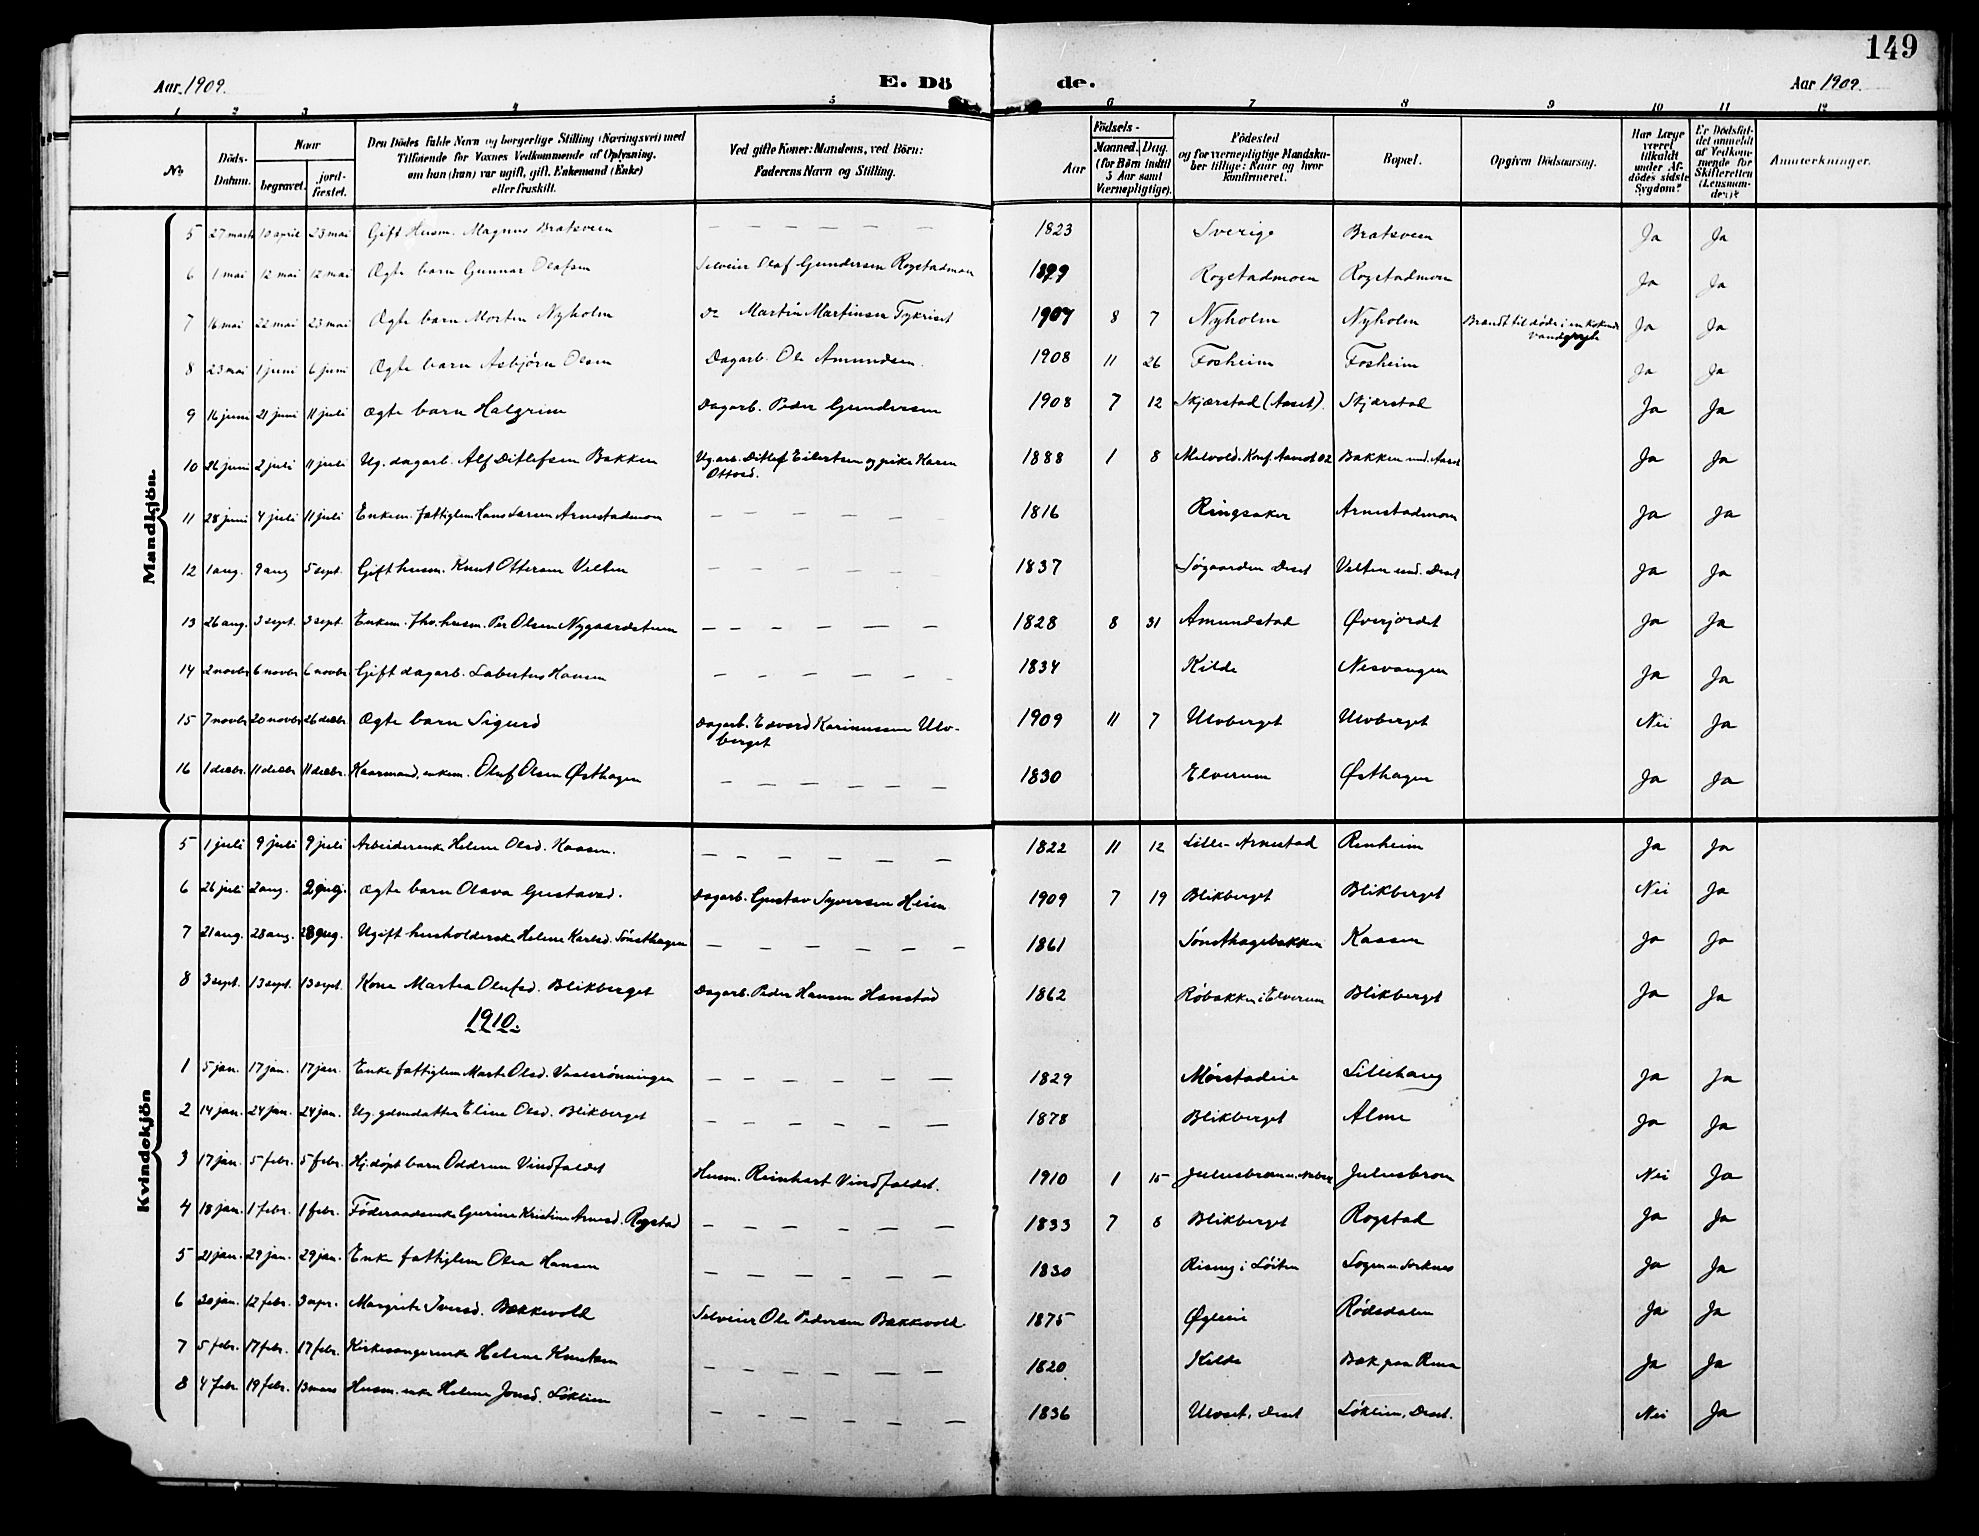 149
Aar 1909. E. Dö de. Aar 1909.
1 2 3 4 5 6 7 8 9 10 11 12
No. Döds-Datum. Naar begravet. jord-fæstet. Den Dödes fulde Navn og borgerlige Stilling (Næringsvei) med Tilföiende for Voxnes Vedkommende af Oplysning, om han (hun) var ugift, gift, Enkemand (Enke) eller fraskilt. Ved gifte Koner: Mandens, ved Börn: Faderens Navn og Stilling. Födsels- Aar Maaned. Dag. (for Börn indtil 5 Aar samt Værnepligtige). Födested og for værnepligtige Mandskaber tillige: Naar og hvor konfirmeret. Bopæl. Opgiven Dödsaarsag. Har Læge været tilkaldt under Afdödes sidste Sygdom? Er Dödsfaldet anmeldt af Vedkommende for Skifteretten (Lensmanden)? Anmærkninger.
Mandkjön
5 27 marts 10 april 23 mai Gift Husm. Magnus Bratsveen — — — — — — 1823 Sverige Bratsveen Ja Ja
6 1 mai 12 mai 12 mai Ægte barn Gunnar Olafsen Selveier Olaf Gundersen Rogstadmoen 1899 Rogstadmoen Rogstadmoen Ja Ja
7 16 mai 22 mai 23 mai Ægte barn Morten Nyholm Do Martin Martinsen 1907 8 7 Nyholm Nyholm Brandt tildøde i en kokende vandgryte Ja Ja
8 23 mai 1 juni 6 juni Ægte barn Asbjørn Olsen Dagarb. Ole Amundsen. 1908 11 26 Fosheim Fosheim Ja Ja
9 16 juni 21 juni 11 juli Ægte barn Halgrim Dagarb. Peder Gundersen 1908 7 12 Skjærstad (Aaset). Skjærstad Ja Ja
10 26 juni 2 juli 11 juli Ug. dagarb. Alf Ditlefsen Bakken Ug. arb. Ditlef Eilertsen og pike Karen Ottosd. 1888 1 8 Melvold. Konf. Aamot 02 Bakken und. Aaset Ja Ja
11 28 juni 4 juli 11 juli Enkem. fattiglem Hans Larsen Arnestadmoen — — — — — — 1816 Ringsaker Arnestadmoen Ja Ja
12 1 aug. 9 aug 5 sept. Gift husm. Knut Ottersen Velten — — — — — — 1837 Søgaarden Deset Velten und. Deset Ja Ja
13 26 aug. 3 sept. 3 sept. Enkem. fhv. husm. Per Olsen Nygaardstuen — — — — — — 1828 8 31 Amundstad Øverjordet Ja Ja
14 2 novbr 6 novbr 6 novbr Gift dagarb. Labertus Hansen — — — — — — 1834 Kilde Nesvangen Ja Ja
15 7 novbr 20 novbr 26 decbr Ægte barn Sigurd Dagarb. Edvard Karinussen Ulvberget 1909 11 7 Ulvberget Ulvberget Nei Ja
16 1 decbr. 11 decbr 11 decbr. Kaarmand, enkem. Oluf Olsen Østhagen — — — — — — 1830 Elverum Østhagen Ja Ja
Kvindekjön
5 1 juli 9 juli 9 juli Arbeiderenke Helene Olsd. Kaasen. — — — — — — 1822 11 12 Lille-Arnestad Renheim Ja Ja
6 26 juli 2 aug. Ægte barn Olava Gustavsd. Dagarb. Gustav Syversen Heien 1909 7 19 Blikberget Blikberget Nei Ja
7 21 aug. 28 aug. 28 aug. Ugift husholderske Helene Karlsd. Sønsthagen — — — — — — 1861 Sønsthagebakken Kaasen Ja Ja
8 3 sept. 13 sept. 13 sept. Kone Martea Olufsd. Blikberget Dagarb. Peder Hansen Hanstad 1862 Røbakken i Elverum Blikberget Ja Ja
1910.
1 5 jan. 17 jan. 17 jan. Enke fattiglem Marte Olsd. Vaalsrønningen — — — — — — 1829 Mørstadeie Lillehaug Ja Ja
2 14 jan. 24 jan. 24 jan. Ug. gdmdatter Eline Olsd. Blikberget — — — — — — 1878 Blikberget Alme Ja Ja
3 17 jan. 5 febr. 5 febr. Hj. døpt barn Oddrun Vindfaldet Husm. Reinhart Vindfaldet. 1910 1 15 Juliusbroen Nei Ja
4 18 jan. 1 febr. 1 febr. Føderaadsenke Gurine Kristine Arnesd. Rogstad — — — — — — 1833 7 8 Blikberget Rogstad Ja Ja
5 21 jan. 29 jan. 29 jan. Enke fattiglem Olea Hansen — — — — — — 1830 Rising i Løiten Ja Ja
6 30 jan. 12 febr. 3 apr. Margrete Iversd. Bækkevold Selveier Ole Pedersen Bækkevold 1875 Øgleeie Rødsdalen Ja Ja
7 5 febr. 17 febr. 17 febr. Kirkesangerenke Helene Knutsen — — — — — — 1820 Kilde Bæk paa Rena Ja Ja
8 4 febr. 19 febr. 13 mars Husm. enke Helene Jonsd. Løklien — — — — — — 1836 Ulvset, Deset Løklien, Deset. Nei Ja